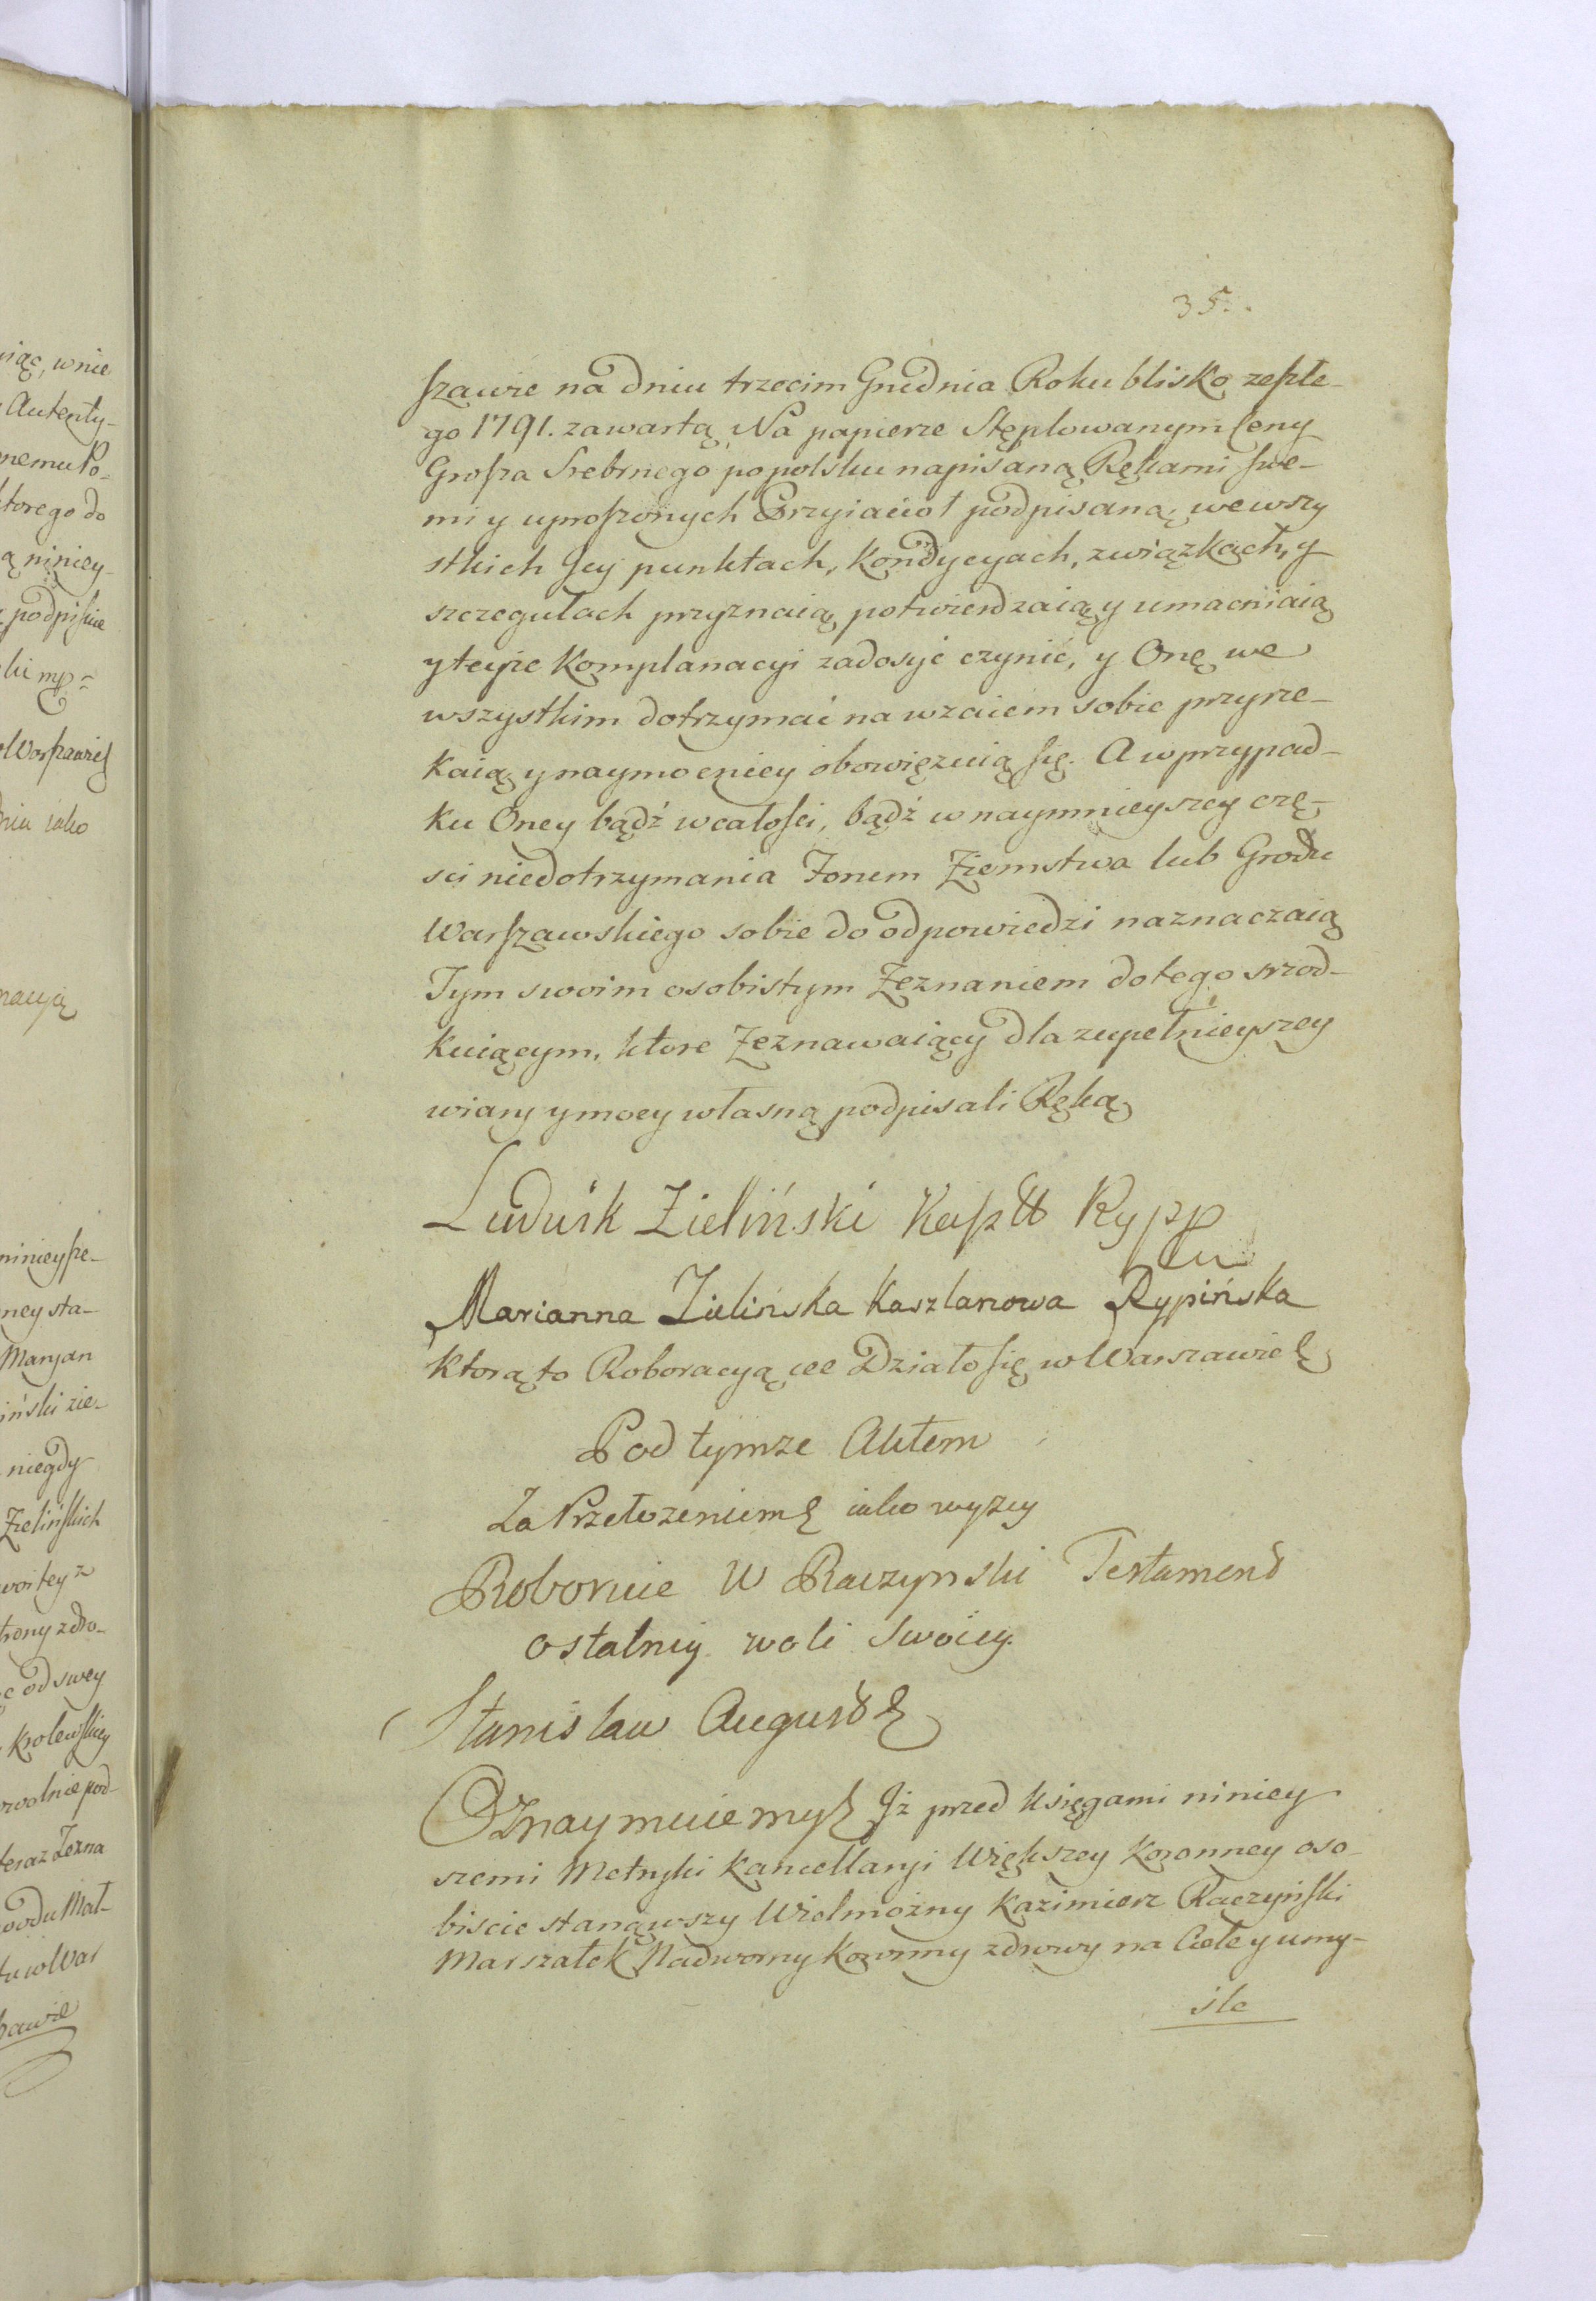 35.
szawie na dniu trzecim Grudnia Roku blisko zeszłe-
go 1791. zawartą Na papierze Stęplowanym Ceny
Grosza Srebrnego po polsku napisaną Rękami swe-
mi y uproszonych Przyiacioł podpisaną, we wszy
stkich Jey punktach, Kondycyach, związkach, y
szczegułach przyznaią potwierdzaią y umacniaią
y teyże Komplanacyi zadosyć czynić, y Onę we
wszystkim dotrzymać na wzaiem sobie przyrze-
kaią y naymocniey obowięzuią się. A w przypad-
ku Oney bądź w całości, bądź w naymnieyszey czę-
sci niedotrzymania Forum Ziemstwa lub Grodu
Warszawskiego sobie do odpowiedzi naznaczaią
Tym swoim osobistym Zeznaniem do tego srzod-
kuiącym, ktore Zeznawaiący dla zupełnieyszey
wiary y mocy własną podpisali Ręką
Ludwik Zieliński Kasztt Rypp
Marianna Zielińska Kasztlanowa Rypińska
Ktorą to Roboracyą etc Działo się w Warszawie
Pod tymże Aktem
Za Przełożeniem iako wyżey
Roboruie W Raczynski Testament
ostatniy woli Swoiey.
Stanisław August
Oznaymuiemy Iż przed księgami niniey
szemi Metryki Kancellaryi Większey Koronney oso-
biscie stanąwszy Wielmożny Kazimierz Raczyński
Marszałek Nadworny Koronny zdrowy na Ciele y umy-
śle
iąc, w nie
Autenty-
nemu Po-
ktorego do
ą niniey-
podpisue
Warszawie
dniu iako
niniey sze-
ney sta-
Maryan
iński zie-
niegdy
Zielińskich
trony zdro-
ę od swey
Krolewskiey
wolnie pod-
teraz Zezna
wodu Mał-
tu w War
szawie